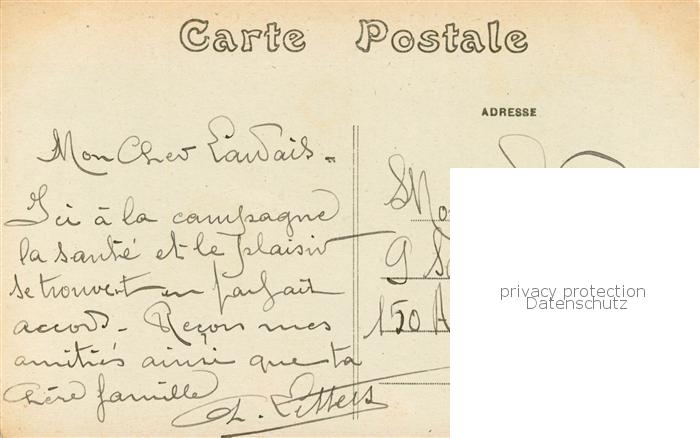 Carte Postale
ADRESSE
Mon Cher
Ici à la campagne
la santé et le plaisir
se trouvent en parfait
accord. Reçois mes
amitiés ainsi que ta
chère famille
9
150 A
privacy protection
Datenschutz